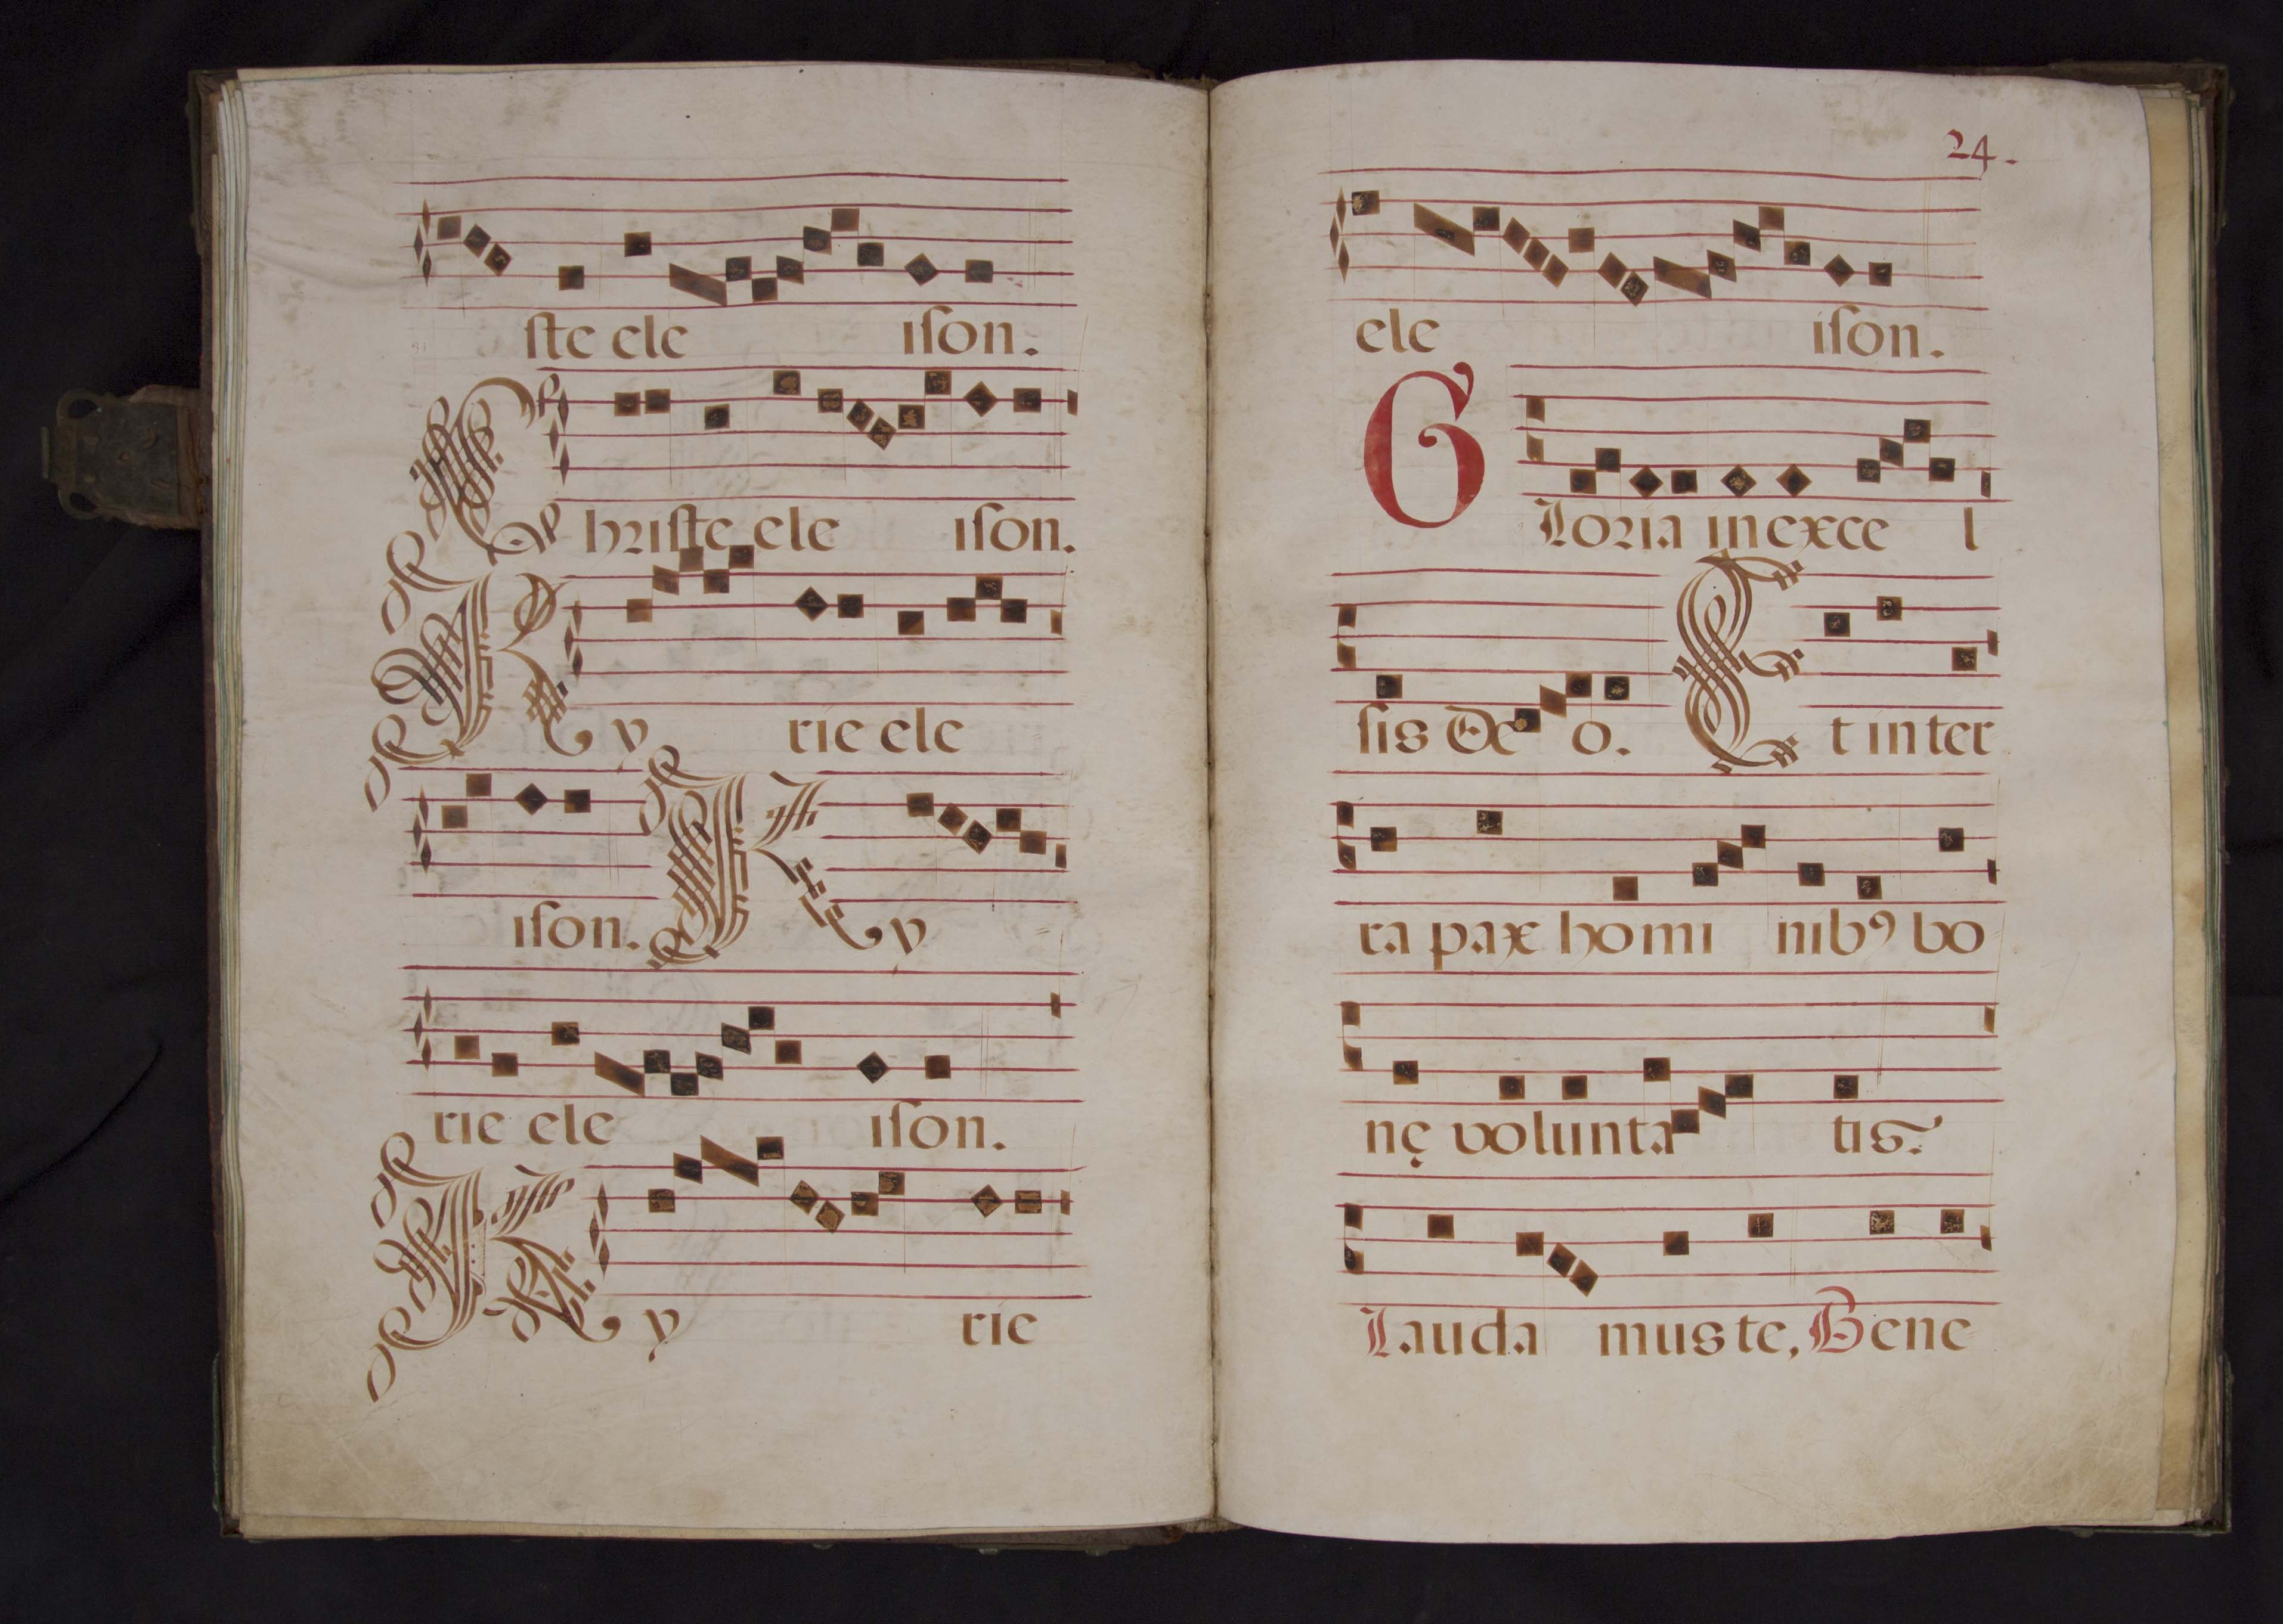 ſte ele iſon.
Chriſte ele iſon.
Ky rie ele
iſon. Ky
rie ele iſon.
Ky rie
24.
ele iſon.
Gloria in exce l
ſis Deo. Et in ter
ra pax homi nibꝰ bo
nę volunta tis.
Lauda mus te, Bene